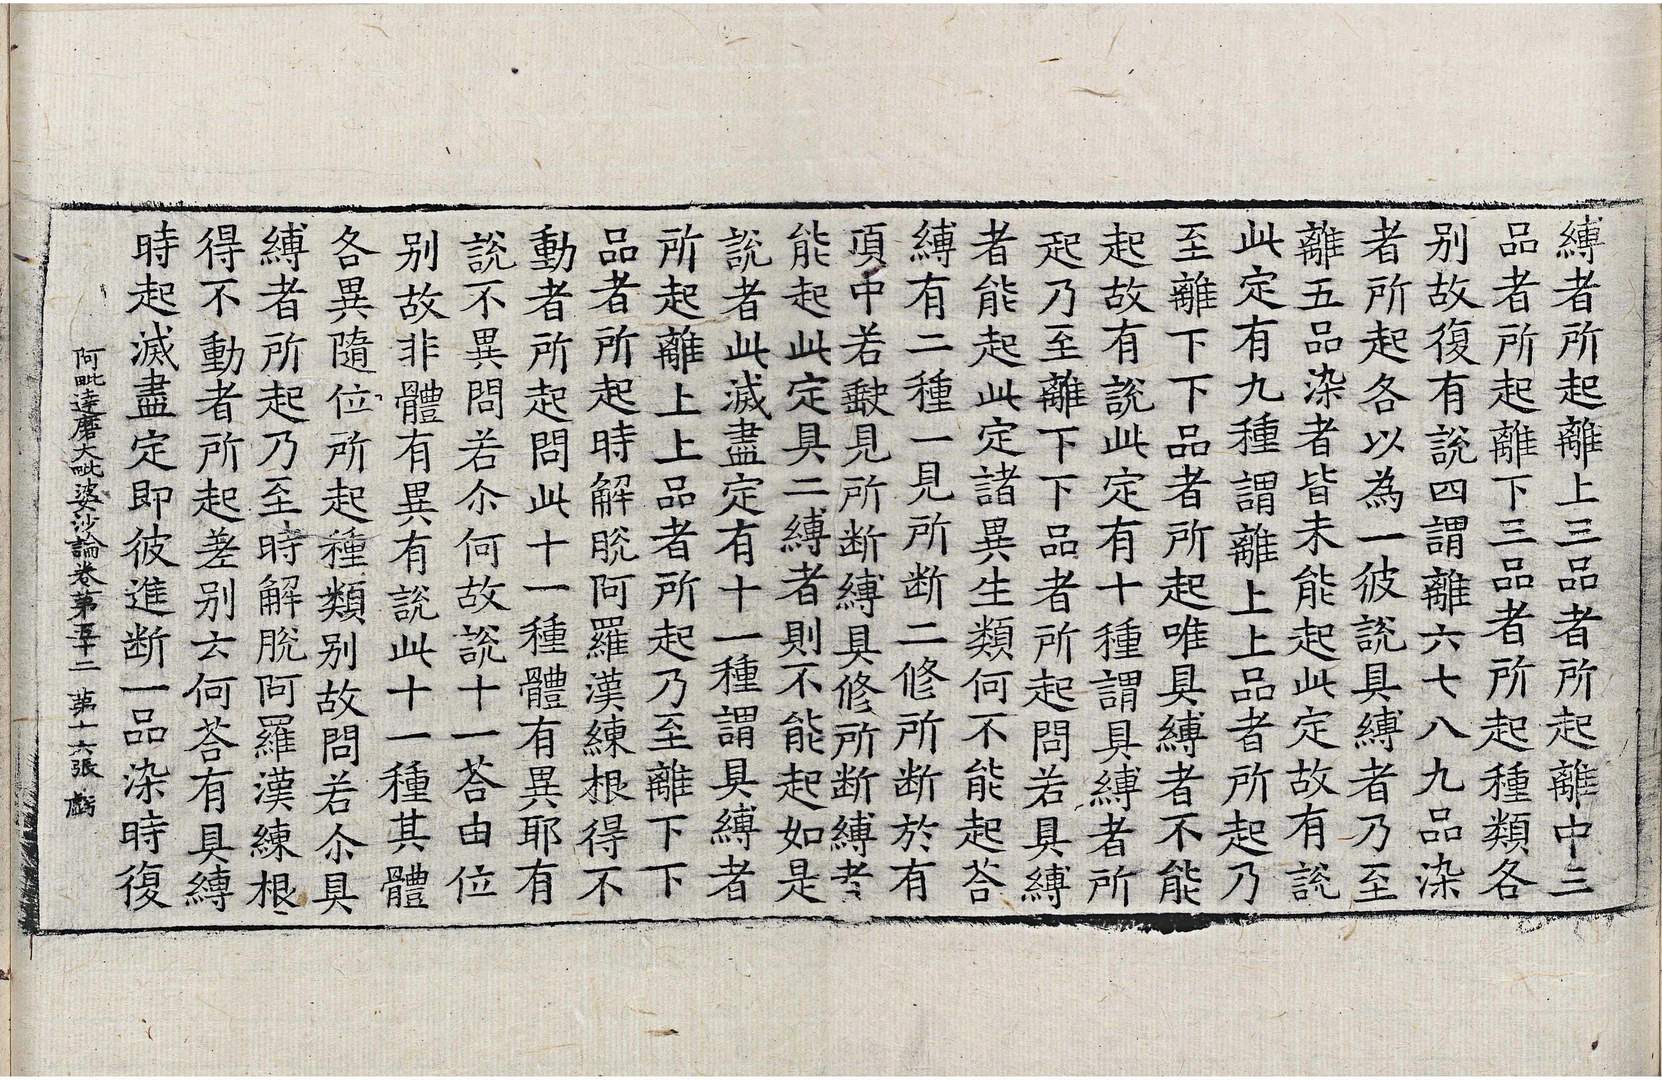 縛者所起離上三品者所起離中三
品者所起離下三品者所起種類各
别故復有說四謂離六七八九品染
者所起各以為一彼說具縛者乃至
離五品染者皆未能起此定故有說
此定有九種謂離上上品者所起乃
至離下下品者所起唯具縛者不能
起故有說此定有十種謂具縛者所
起乃至離下下品者所起問若具縛
者能起此定諸異生類何不能起荅
縛有二種一見所断二修所断於有
頂中若𭮀見所断縛具修所断縛者
能起此定具二縛者則不能起如是
說者此滅盡定有十一種謂具縛者
所起離上上品者所起乃至離下下
品者所起時解脫阿羅漢練根得不
動者所起問此十一種體有異耶有
說不異問若尒何故說十一荅由位
别故非體有異有說此十一種其體
各異隨位所起種類别故問若尒具
縛者所起乃至時解脫阿羅漢練根
得不動者所起差别云何荅有具縛
時起滅盡定即彼進断一品染時復
阿毗達磨大毗婆沙論卷第五十二 第十六張 𭮀